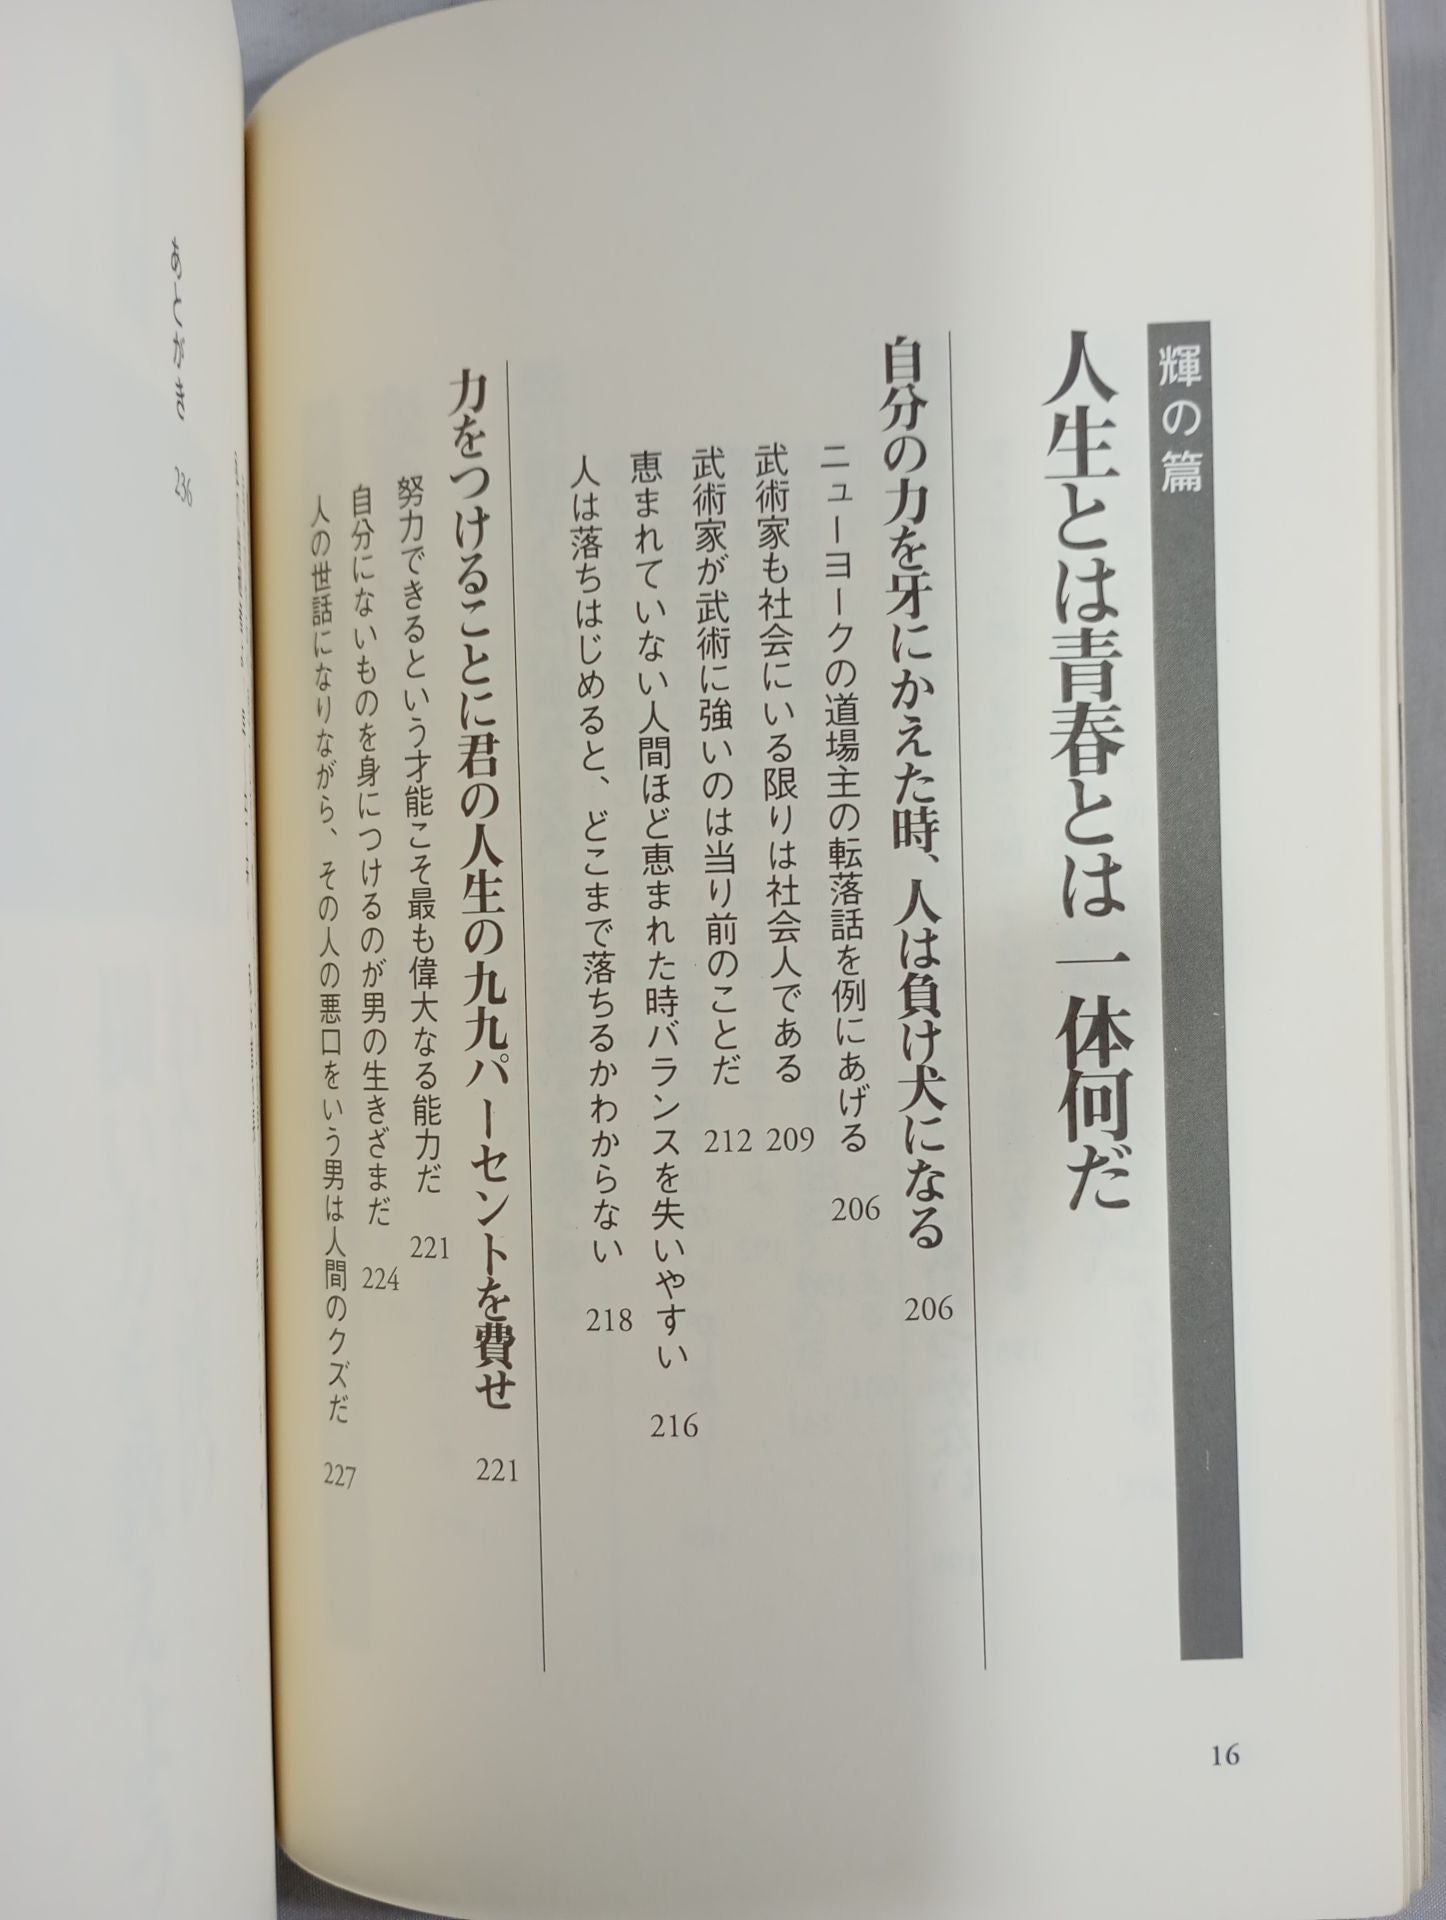 輝の篇
人生とは青春とは一体何だ
自分の力を牙にかえた時、人は負け犬になる 206
ニューヨークの道場主の転落話を例にあげる 206
武術家も社会にいる限りは社会人である 209
武術家が武術に強いのは当り前のことだ 212
恵まれていない人間ほど恵まれた時バランスを失いやすい 216
人は落ちはじめると、どこまで落ちるかわからない 218
力をつけることに君の人生の九九パーセントを費せ 221
努力できるという才能こそ最も偉大なる能力だ 221
自分にないものを身につけるのが男の生きざまだ 224
人の世話になりながら、その人の悪口をいう男は人間のクズだ 227
16
あとがき 236